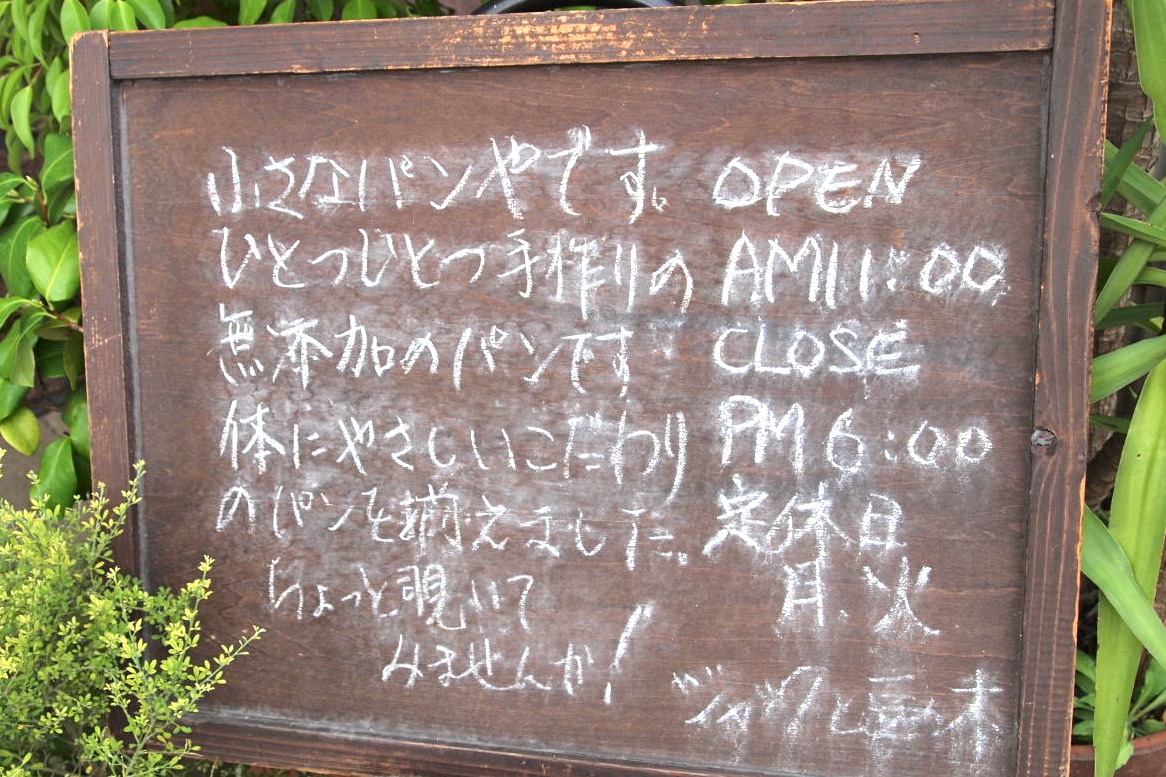 小さなパンやです。
ひとつひとつ手作りの
無添加のパンです
体にやさしいこだわり
のパンを揃えました。
ちょっと覗いて
みませんか!
OPEN
AM11:00
CLOSE
PM6:00
定休日
月、火
ジャックと豆の木